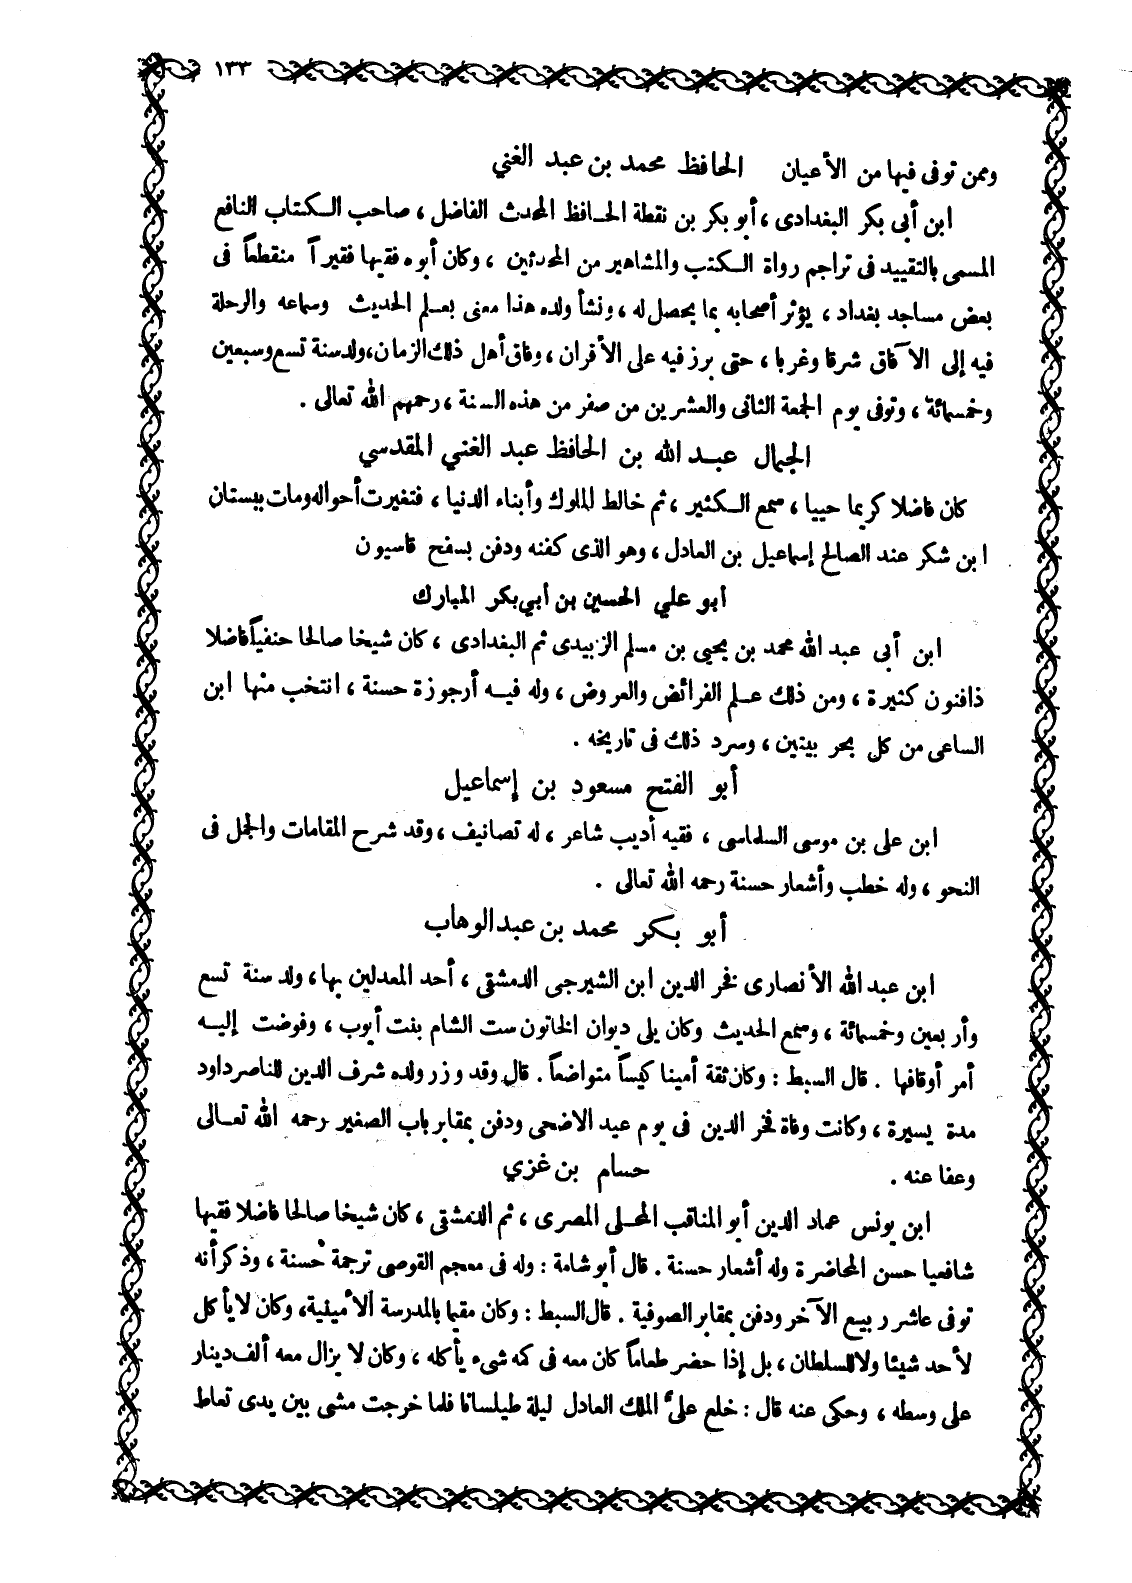 ١٣٣
وممن توفى فيها من الأعيان الحافظ محمد بن عبد الغني
ابن أبى بكر البغدادى ، أبو بكر بن نقطة الحافظ المحدث الفاضل ، صاحب الكتاب النافع
المسمى بالتقييد فى تراجم رواة الكتب والمشاهير من المحدثين ، وكان أبوه فقيها فقيراً منقطعاً فى
بعض مساجد بغداد ، يؤثر أصحابه بما يحصل له ، ونشأ ولده هذا معنى بعلم الحديث وسماعه والرحلة
فيه إلى الآفاق شرقا وغربا ، حتى برز فيه على الأقران ، وفاق أهل ذلك الزمان ، ولد سنة تسع وسبعين
وخمسمائة ، وتوفى يوم الجمعة الثانى والعشرين من صفر من هذه السنة ، رحمهم الله تعالى .
الجمال عبد الله بن الحافظ عبد الغني المقدسي
كان فاضلا كريما حييا ، سمع الكثير ، ثم خالط الملوك وأبناء الدنيا ، فتغيرت أحواله ومات ببستان
ابن شكر عند الصالح إسماعيل بن العادل ، وهو الذى كفنه ودفن بسفح قاسيون
أبو علي الحسين بن أبي بكر المبارك
ابن أبى عبد الله محمد بن يحيى بن مسلم الزبيدى ثم البغدادى ، كان شيخا صالحا حنفياً فاضلا
ذا فنون كثيرة ، ومن ذلك علم الفرائض والعروض ، وله فيه أرجوزة حسنة ، انتخب منها ابن
الساعى من كل بحر بيتين ، وسرد ذلك فى تاريخه .
أبو الفتح مسعود بن إسماعيل
ابن على بن موسى السلماسى ، فقيه أديب شاعر ، له تصانيف ، وقد شرح المقامات والجمل فى
النحو ، وله خطب وأشعار حسنة رحمه الله تعالى .
أبو بكر محمد بن عبد الوهاب
ابن عبد الله الأنصارى فخر الدين ابن الشيرجى الدمشقى ، أحد المعدلين بها ، ولد سنة تسع
وأربعين وخمسمائة ، وسمع الحديث وكان يلى ديوان الخاتون ست الشام بنت أيوب ، وفوضت إليه
أمر أوقافها . قال السبط : وكان ثقة أمينا كيساً متواضعاً . قال وقد وزر ولده شرف الدين للناصر داود
مدة يسيرة ، وكانت وفاة فخر الدين فى يوم عيد الاضحى ودفن بمقابر باب الصغير رحمه الله تعالى
وعفا عنه .
حسام بن غزي
ابن يونس عماد الدين أبو المناقب المحلى المصرى ، ثم الدمشقى ، كان شيخا صالحا فاضلا فقيها
شافعيا حسن المحاضرة وله أشعار حسنة . قال أبو شامة : وله فى معجم القوصى ترجمة حسنة ، وذكر أنه
توفى عاشر ربيع الآخر ودفن بمقابر الصوفية . قال السبط : وكان مقيما بالمدرسة الأمينية ، وكان لا يأكل
لأحد شيئا ولا للسلطان ، بل إذا حضر طعاماً كان معه فى كمه شىء يأكله ، وكان لا يزال معه ألف دينار
على وسطه ، وحكى عنه قال : خلع علىّ الملك العادل ليلة طيلسانا فلما خرجت مشى بين يدى تعاط